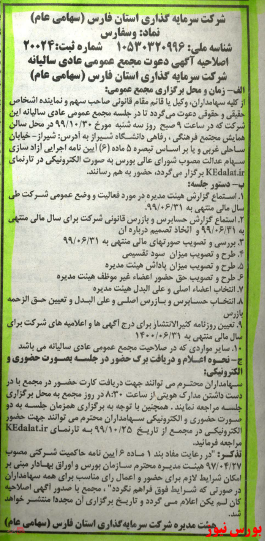 شرکت سرمایه گذاری استان فارس (سهامی عام)
نماد: وسفارس
شناسه ملی: ۱۰۵۳۰۳۲۰۹۹۶ شماره ثبت: ۲۰۰۲۴
اصلاحیه آگهی دعوت مجمع عمومی عادی سالیانه
شرکت سرمایه گذاری استان فارس (سهامی عام)
الف- زمان و محل برگزاری مجمع عمومی:
از کلیه سهامداران، وکیل یا قائم مقام قانونی صاحب سهم و نماینده اشخاص
حقیقی و حقوقی دعوت می گردد تا در جلسه مجمع عمومی عادی سالیانه این
شرکت که در ساعت ۹ صبح روز سه شنبه مورخ ۹۹/۱۰/۳۰ در محل سالن
همایش مجتمع فرهنگی، رفاهی دانشگاه شیراز به آدرس: شیراز-خیابان
ساحلی غربی و یا بر اساس تبصره ۵ ماده (۶) آیین نامه اجرایی آزاد سازی
سهام عدالت مصوب شورای عالی بورس به صورت الکترونیکی در تارنمای
KEdalat.ir برگزار می گردد، حضور به هم رسانند.
ب- دستور جلسه:
۱. استماع گزارش هیئت مدیره در مورد فعالیت و وضع عمومی شرکت طی
سال مالی منتهی به ۹۹/۰۶/۳۱.
۲. استماع گزارش حسابرس و بازرس قانونی شرکت برای سال مالی منتهی
به ۹۹/۰۶/۳۱ و اتخاذ تصمیم درباره آن
۳. بررسی و تصویب صورتهای مالی منتهی به ۹۹/۰۶/۳۱
۴. طرح و تصویب میزان سود تقسیمی
۵. طرح و تصویب میزان پاداش هیئت مدیره
۶. طرح و تصویب حق حضور اعضاء غیر موظف هیئت مدیره
۷. انتخاب اعضاء اصلی و علی البدل هیئت مدیره
۸. انتخاب حسابرس و بازرس اصلی و علی البدل و تعیین حق الزحمه
بازرس
۹. تعیین روزنامه کثیرالانتشار برای درج آگهی ها و اعلامیه های شرکت برای
سال مالی منتهی به ۱۴۰۰/۰۶/۳۱
۱۰. سایر مواردی که در صلاحیت مجمع عمومی عادی سالیانه می باشد
ج- نحوه اعلام و دریافت برگ حضور در جلسه بصورت حضوری و
الکترونیکی:
سهامداران محترم می توانند جهت دریافت کارت حضور در مجمع با در
دست داشتن مدارک هویتی از ساعت ۸:۳۰ در روز مجمع به محل برگزاری
جلسه مراجعه نمایند. همچنین با توجه به برگزاری همزمان جلسه به دو
صورت حضوری و الکترونیکی سهامداران محترم می توانند جهت حضور
الکترونیکی در مجمع از تاریخ ۹۹/۱۰/۲۵ به تارنمای KEdalat.ir
مراجعه فرمائید.
تذکر: "در رعایت مفاد بند ۱ ماده ۶ آیین نامه حاکمیت شرکتی مصوب
۹۷/۰۴/۲۷ هیئت مدیره محترم سازمان بورس و اوراق بهادار مبنی بر
امکان شرایط لازم برای حضور و اعمال رای مناسب برای همه سهامداران
در صورتی که شرایط فوق فراهم نگردد"، مجمع با صدور آگهی اصلاحیه
کان لم یکن اعلام می گردد و تاریخ برگزاری آن مجددا منتشر خواهد
شد.
هیئت مدیره شرکت سرمایه گذاری استان فارس (سهامی عام)
بورس نیوز